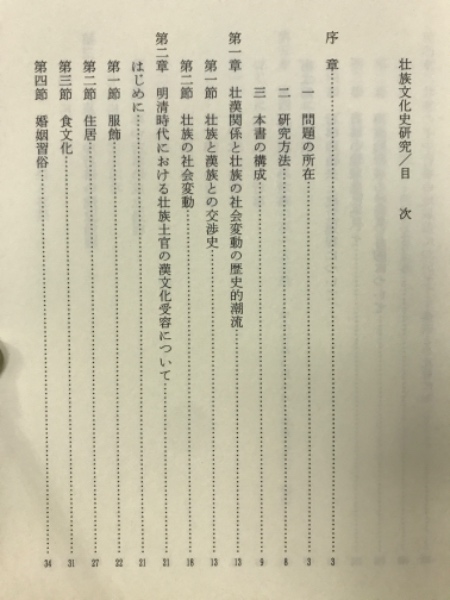 壮族文化史研究/目 次
序 章……………………3
一 問題の所在……………………3
二 研究方法……………………8
三 本書の構成……………………9
第一章 壮漢関係と壮族の社会変動の歴史的潮流……………………13
第一節 壮族と漢族との交渉史……………………13
第二節 壮族の社会変動……………………18
第二章 明清時代における壮族土官の漢文化受容について……………………21
はじめに……………………21
第一節 服飾……………………22
第二節 住居……………………27
第三節 食文化……………………31
第四節 婚姻習俗……………………34